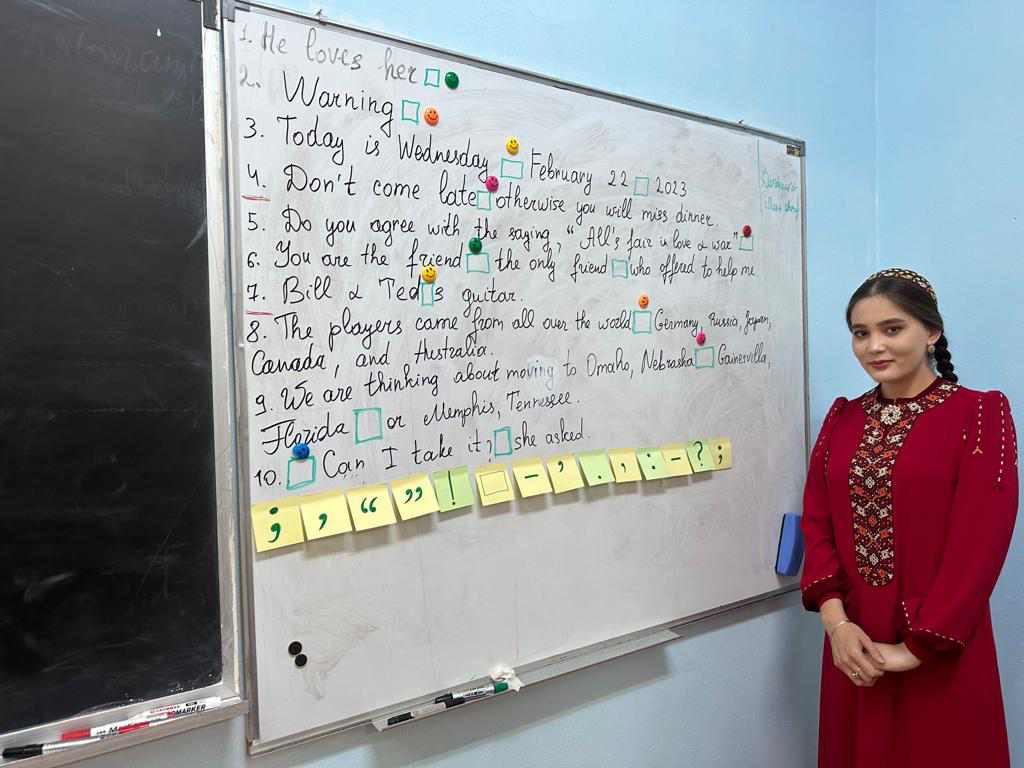 1. He loves her □
2. Warning □
3. Today is Wednesday □ February 22 □ 2023
4. Don't come late □ otherwise you will miss dinner.
5. Do you agree with the saying, "All's fair in love & war" □
6. You are the friend □ the only friend □ who offered to help me
7. Bill & Ted □ s guitar.
8. The players came from all over the world □ Germany, Russia, Japan,
Canada, and Australia.
9. We are thinking about moving to Omaho, Nebraska □ Gainesvilla,
Florida □ or Memphis, Tennessee.
10. □ Can I take it? □ she asked.
; , “ ” ! □ – ’ . , : – ? ;
MARKER